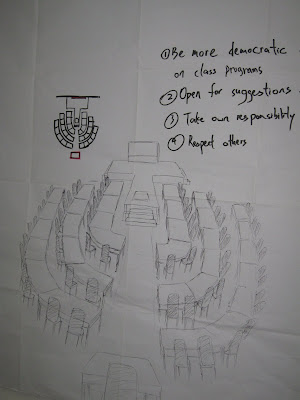 ① Be more democratic
on class programs
② Open for suggestions
③ Take own responsibility
④ Respect others